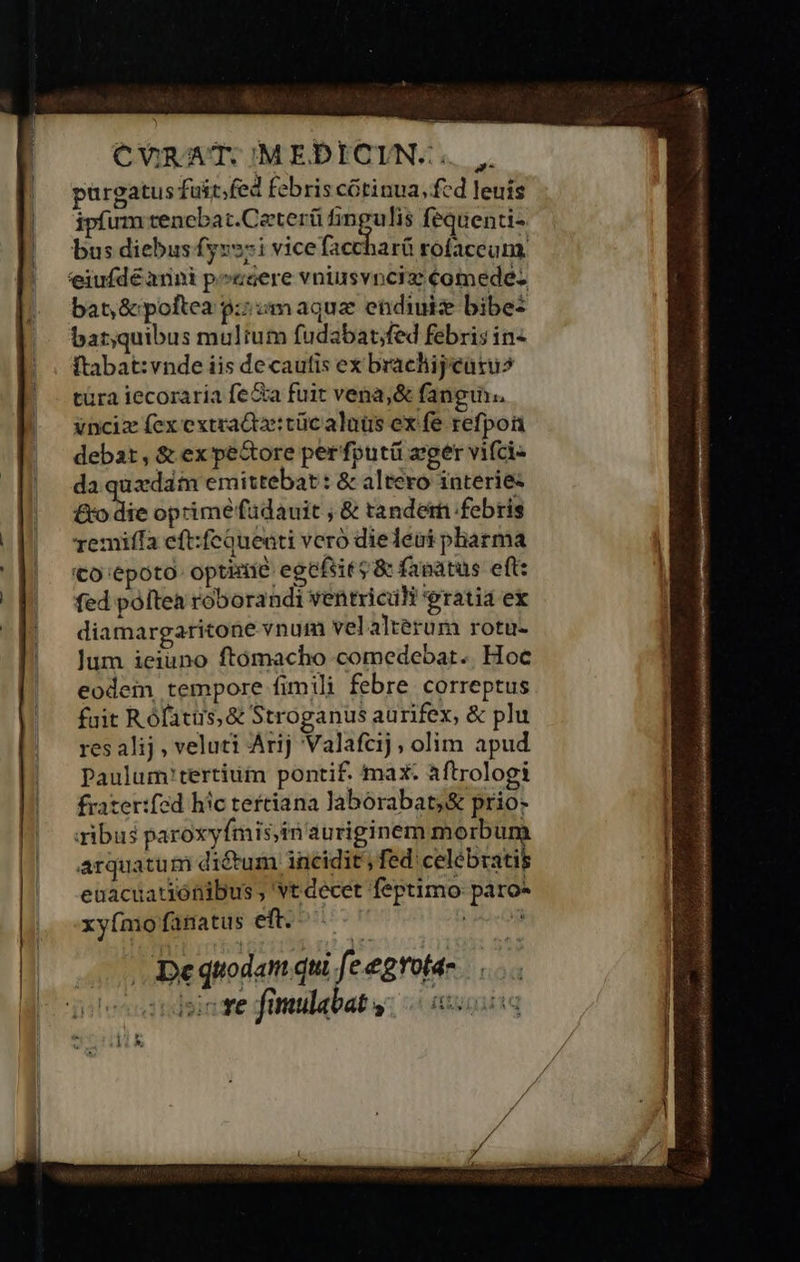 CVRAT. MEDICIN.
purgatus fuit, sed febris cõtinua, sed leuis
ipsum tenebat. Cæterũ singulis sequenti-
bus diebus vice saccharũ rosaceum
eiusdẽ anni vnius vnciæ comede-
bat, & postea aquæ endiuiæ bibe-
bat, quibus multum sudabat, sed febris in-
stabat: vnde iis de causis ex brachij
tura iecoraria secta fuit vena, &
vnciæ sex extractæ: tũc aluus ex se respon
debat, & ex pectore per sputũ æger visci-
da quædam emittebat: & altero interie-
cto die optime sudauit, & tandem febris
remissa est: sequenti verò die leui pharma
co epoto optimè egessit, & sanatus est:
sed postea roborandi ventriculi gratia ex
diamargaritone vnum vel alterum rotu-
lum ieiuno stomacho comedebat. Hoc
eodem tempore simili febre correptus
fuit Rosatus, & Stroganus aurifex, & plu
res alij, veluti Arij Valascij, olim apud
Paulum tertium pontif. max. astrologi
frater: sed hic tertiana laborabat, & prio-
ribus paroxysmis, in auriginem morbum
arquatum dictum incidit, sed celebratis
euacuationibus, vt decet septimo paro-
xysmo sanatus est.
De quodam qui se egrota-
re simulabat,